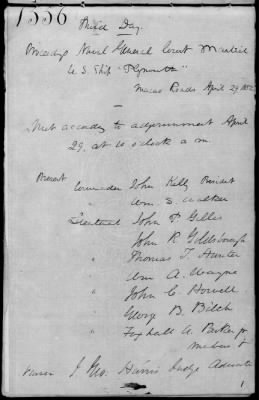 1336
Third Day.
Proceedgs Naval General Court Martial
U.S. Ship "Plymouth"
Macao Roads April 29 1852
Met accordg to adjournment April
29, at 10 o'clock a m.
Present Commander John Kelly President
" Wm S. Walker
Lieutenant John P. Gillis
John R Goldsborough
" Thomas T. Hunter
Wm A. Wayne
" John C Howell
George B. Balch
" Foxhall A. Parker jr
members
Purser J Geo. Harris Judge Advocate
1